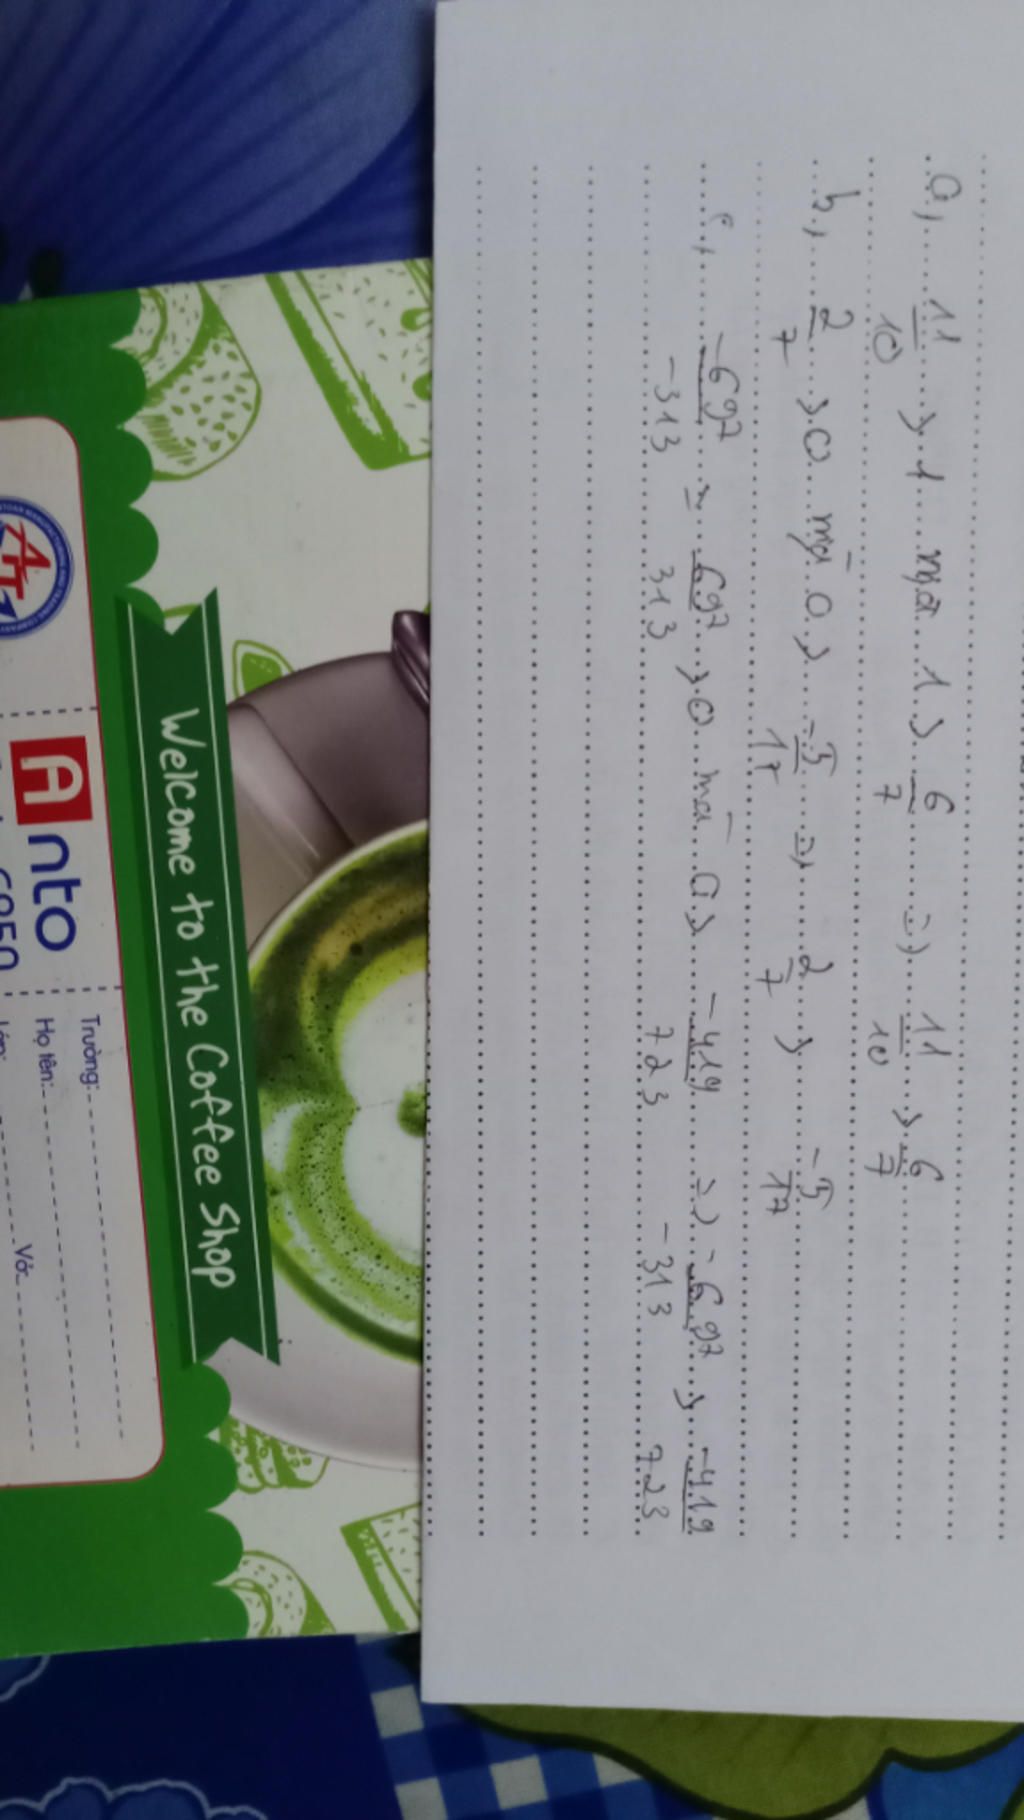 a, 11/10 > 1 mà 1 > 6/7 => 11/10 > 6/7
b, 2/7 > 0 mà 0 > -5/17 => 2/7 > -5/17
c, -697/-313 = 697/313 > 0 mà 0 > -419/723 => -697/-313 > -419/723
Welcome to the Coffee Shop
Anto
Trường:
Họ tên:
Vở: